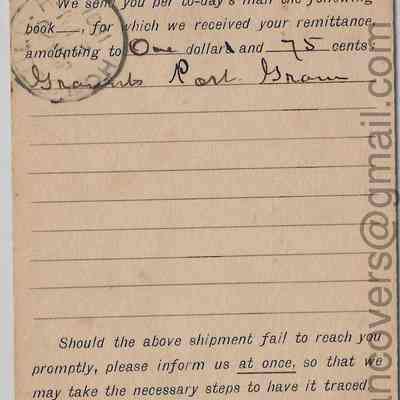 We send you per to-day's mail the following
book__, for which we received your remittance,
amounting to One dollar and 75 cents:
Port. Gram
Should the above shipment fail to reach you
promptly, please inform us at once, so that we
may take the necessary steps to have it traced.
ancovers@gmail.com